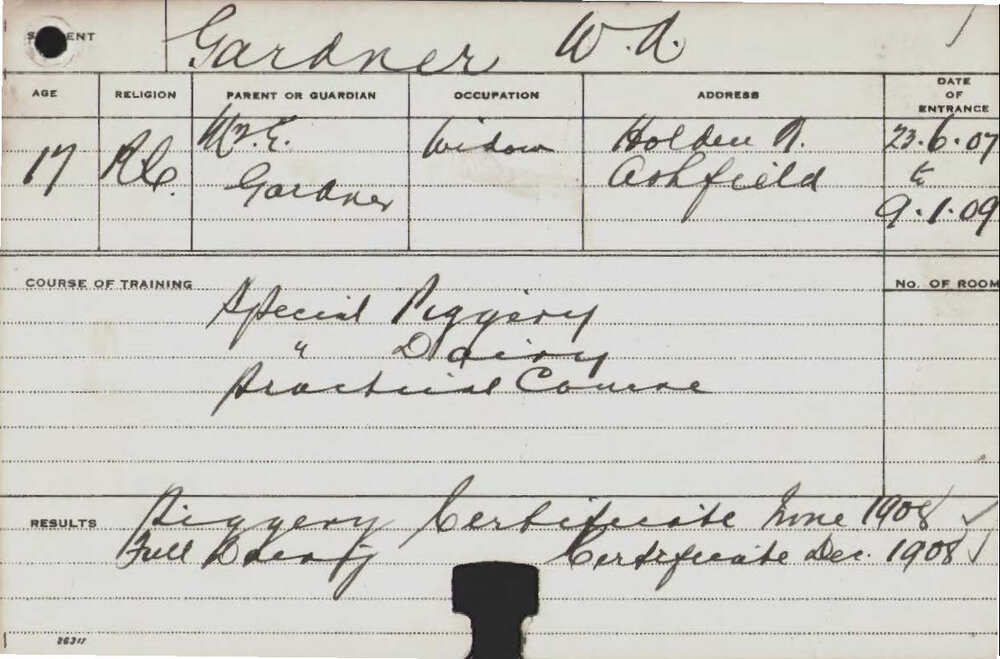 STUDENT Gardner W. A.
AGE RELIGION PARENT OR GUARDIAN OCCUPATION ADDRESS DATE OF ENTRANCE
17 R.C. Mrs. E. Gardner Widow Holden St. Ashfield 23.6.07 to 9.1.09
COURSE OF TRAINING
No. OF ROOM
Special Piggery
" Dairy
Practical Course
RESULTS Piggery Certificate June 1908 ✓
Full Dairy Certificate Dec. 1908 ✓